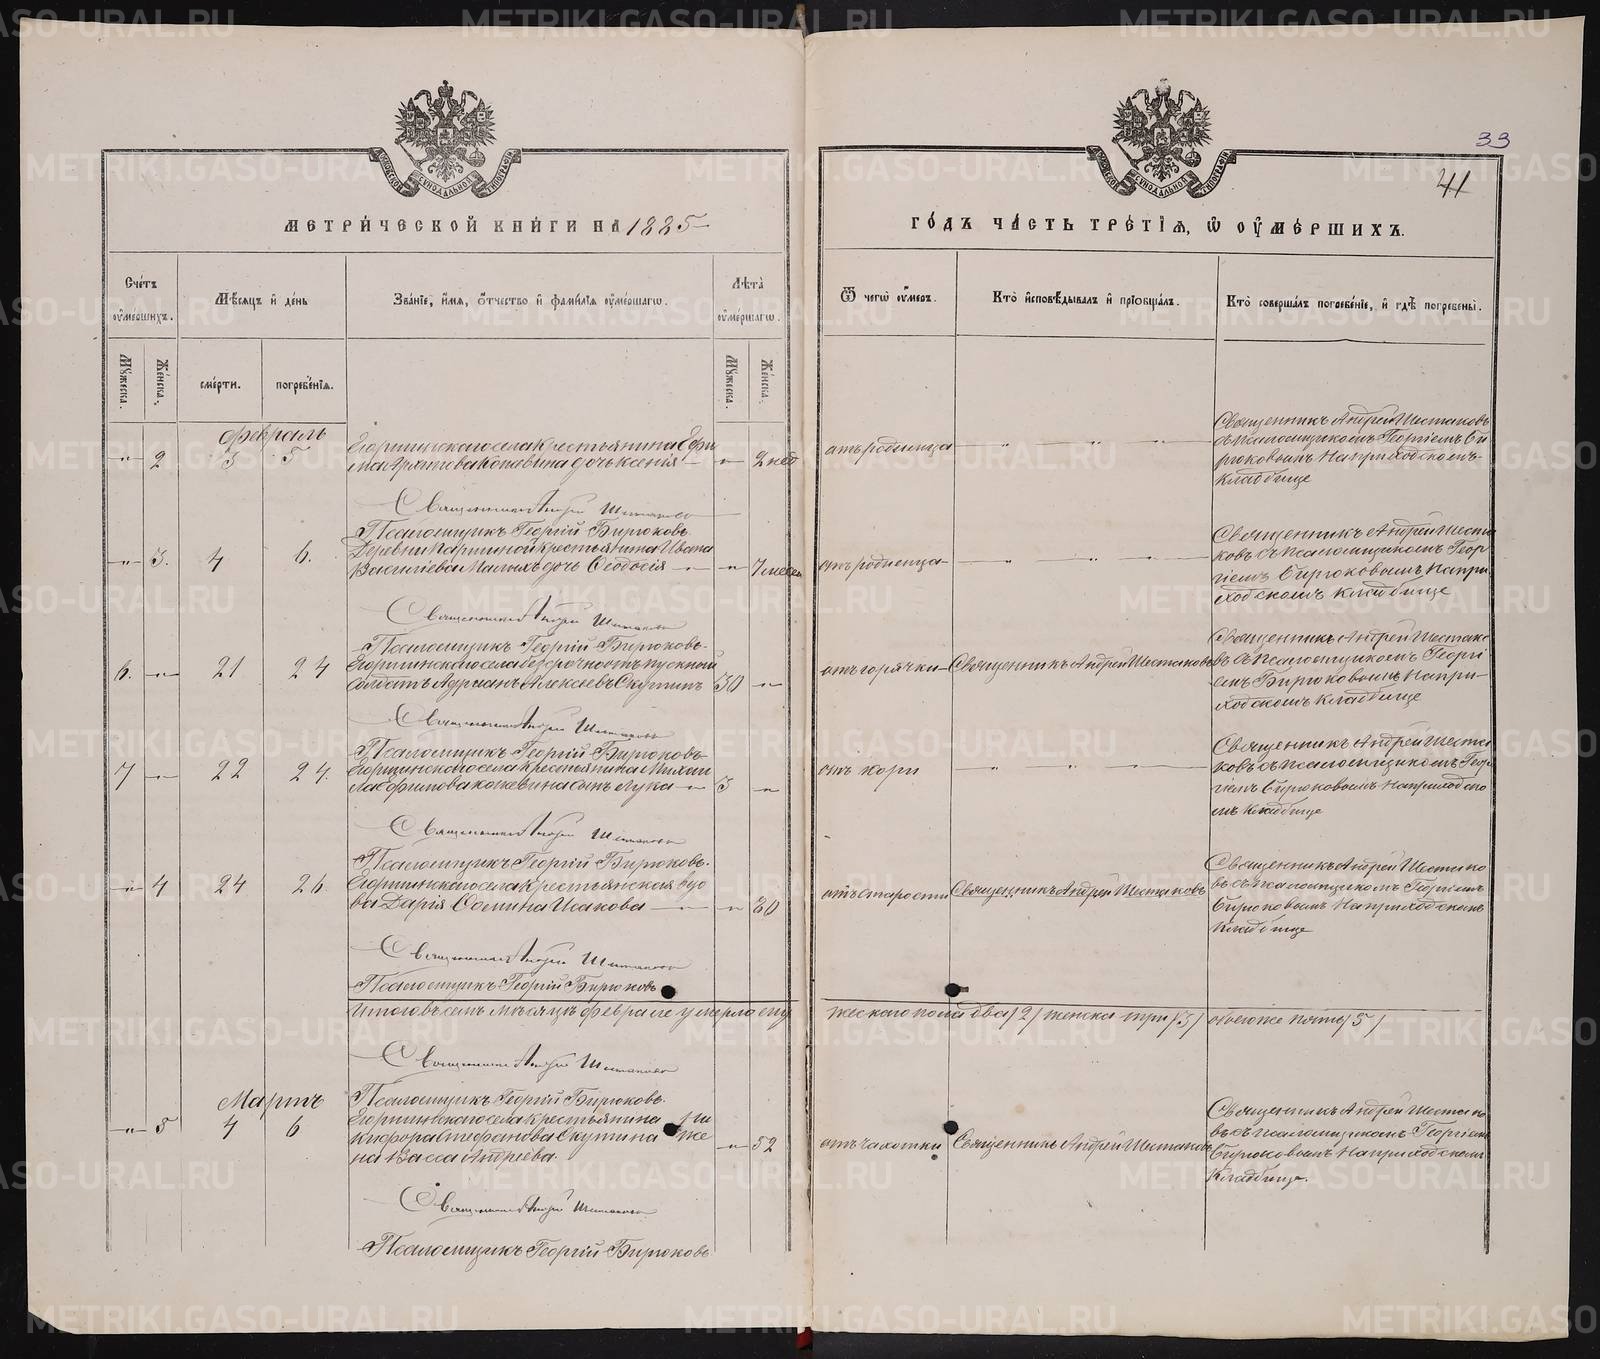 МЕТРИЧЕСКОЙ КНИГИ НА 1885
ГОДЪ ЧАСТЬ ТРЕТІѦ, Ѡ ОУМЕРШИХЪ.
33
41
Счетъ оумершихъ.
Мѣсяцъ и день
Званіе, имя, отчество и фамилія оумершагѡ.
Лѣта оумершагѡ.
Ѿ чегѡ оумеръ.
Кто исповѣдывалъ и пріобщалъ.
Кто совершалъ погребеніе, и гдѣ погребены.
Мужеска.
Женска.
смерти.
погребенія.
Мужеска.
Женска.
Февраль
2
3
5
села крестьянина Ефи
дочь Ксенія
2 нед
отъ родимца
Священникъ Андрей Шестаковъ
съ псаломщикомъ Георгіемъ Би
рюковымъ На приходскомъ
кладбище
Священникъ Андрей Шестаковъ
Псаломщикъ Георгій Бирюковъ
3.
4
6.
Деревни крестьянина Ивана
Васильева Малыхъ дочь Ѳеодосія
7 месец
отъ родимца
Священникъ Андрей Шеста
ковъ съ псаломщикомъ Геор
гіемъ Бирюковымъ На при
ходскомъ кладбище
Священникъ Андрей Шестаковъ
Псаломщикъ Георгій Бирюковъ
6.
21
24
села безсрочноотпускной
солдатъ Адріанъ Алексѣевъ Скутинъ
30
отъ горячки
Священникъ Андрей Шестаковъ
Священникъ Андрей Шестако
въ съ псаломщикомъ Георгі
емъ Бирюковымъ На при
ходскомъ кладбище
Священникъ Андрей Шестаковъ
Псаломщикъ Георгій Бирюковъ
7
22
24.
села крестьянина Михаи
ла Ефимова сынъ Лука
3
отъ кори
Священникъ Андрей Шеста
ковъ съ псаломщикомъ Геор
гіемъ Бирюковымъ На приходско
мъ кладбище
Священникъ Андрей Шестаковъ
Псаломщикъ Георгій Бирюковъ
4
24
26.
села крестьянская вдо
ва Дарія Сомина Исакова
80
отъ старости
Священникъ Андрей Шестаковъ
Священникъ Андрей Шестако
въ съ псаломщикомъ Георгіемъ
Бирюковымъ На приходскомъ
кладбище
Священникъ Андрей Шестаковъ
Псаломщикъ Георгій Бирюковъ
Итого въ семъ мѣсяцѣ феврале умерло му
жескаго пола два /2/ женска три /3/ обоего же пять /5/
Священникъ Андрей Шестаковъ
Псаломщикъ Георгій Бирюковъ
Мартъ
5
4
6
села крестьянина Ни
кифора Стефанова Скутина же
на Васса Андріева.
52
отъ чахотки
Священникъ Андрей Шестаковъ
Священникъ Андрей Шестако
въ съ псаломщикомъ Георгіемъ
Бирюковымъ На приходскомъ
кладбище.
Священникъ Андрей Шестаковъ
Псаломщикъ Георгій Бирюковъ
METRIKI.GASO-URAL.RU